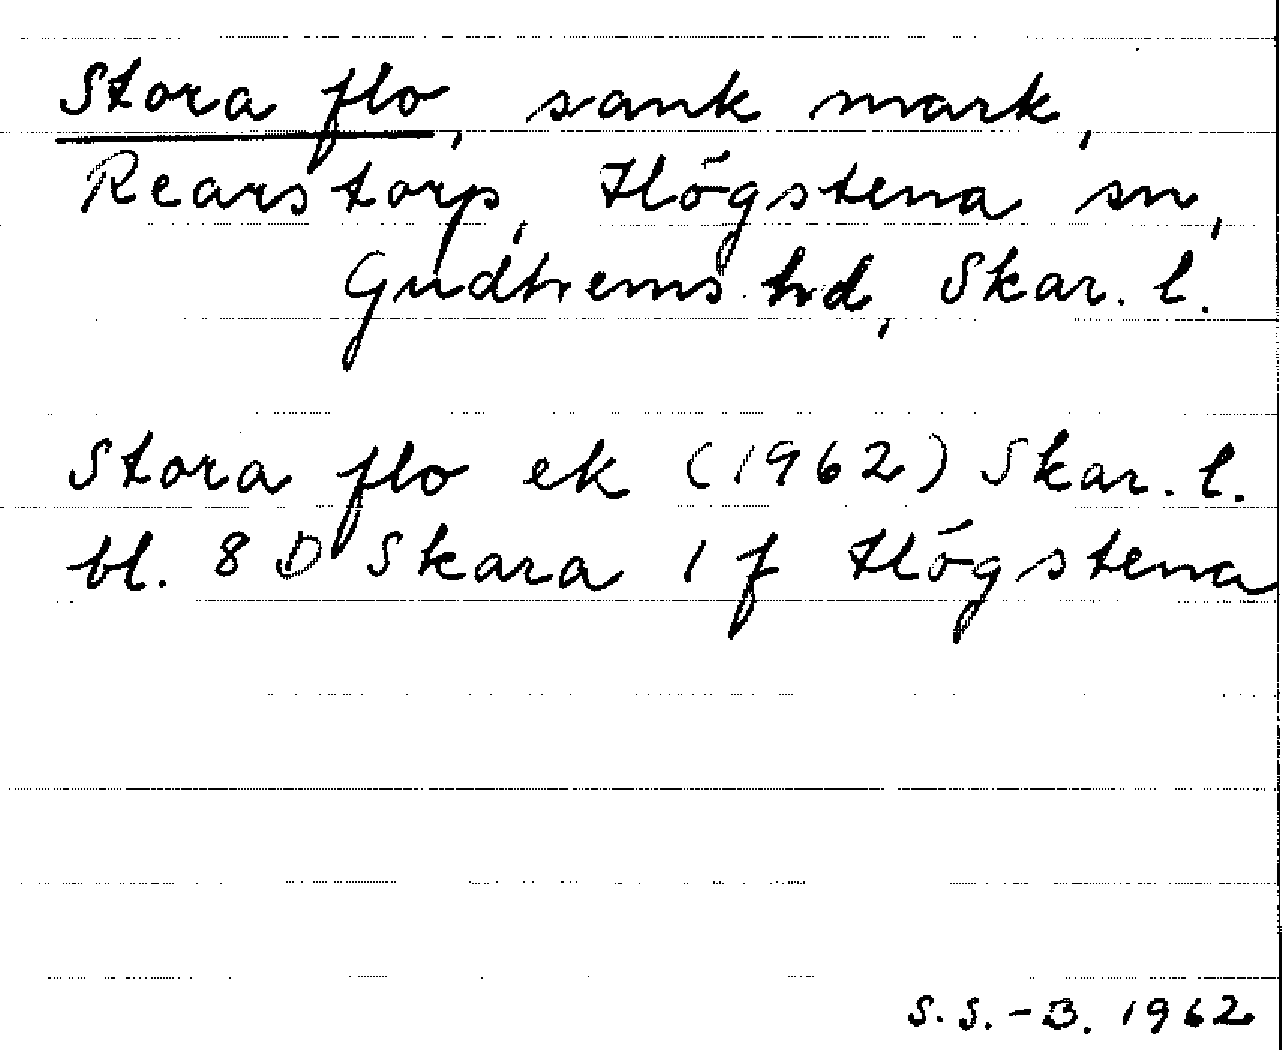 Stora flo, sank mark,
Rearstorp, Högstena sn,
Gudhems hd, Skar. l.
Stora flo ek (1962) Skar. l.
bl. 8 D Skara 1 f Högstena
S.S.-B. 1962